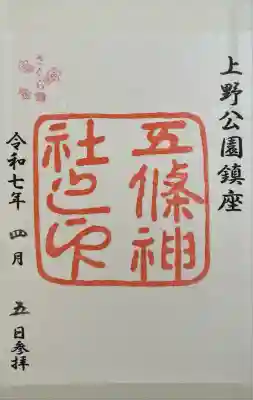 上野公園鎮座
五條神
社之印
さくら
令和七年 四月 五日参拝